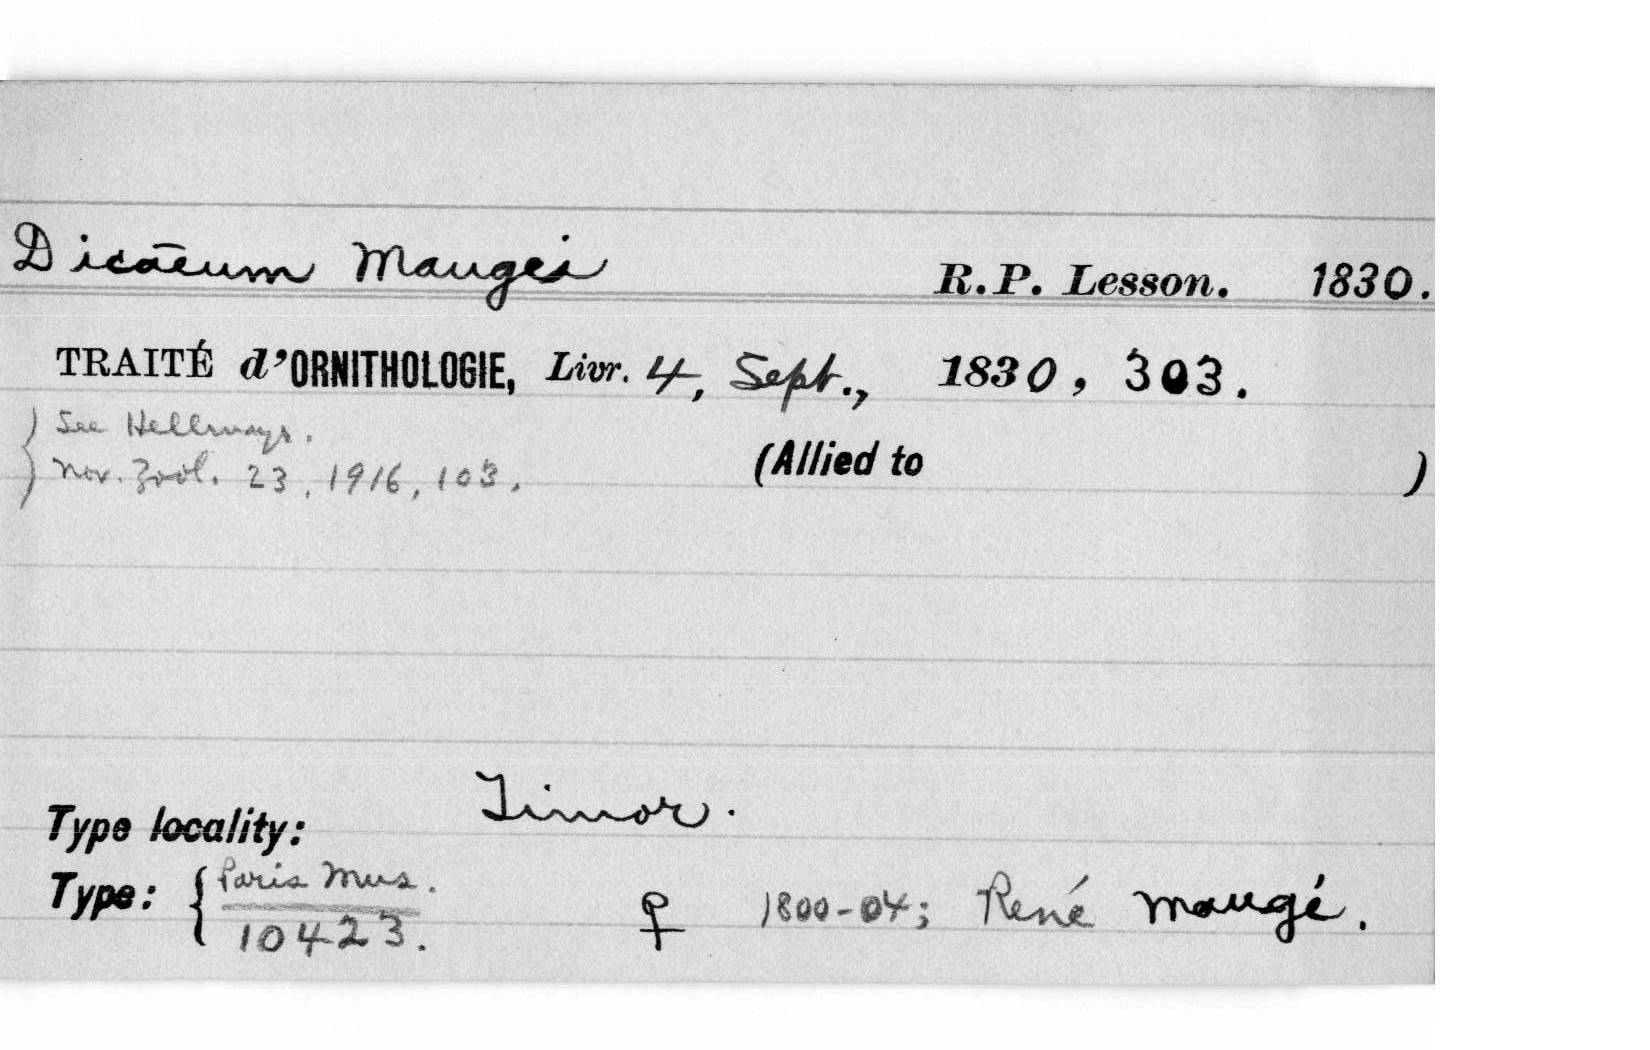 Dicaeum Maugei R.P. Lesson. 1830.
TRAITÉ d'ORNITHOLOGIE, Livr. 4, Sept., 1830, 303.
See Hellmayr.
(Allied to )
Nov. Zool. 23, 1916, 103.
Timor.
Type locality:
Type: { Paris Mus.
10423. ♀ 1800-04; René Maugé.